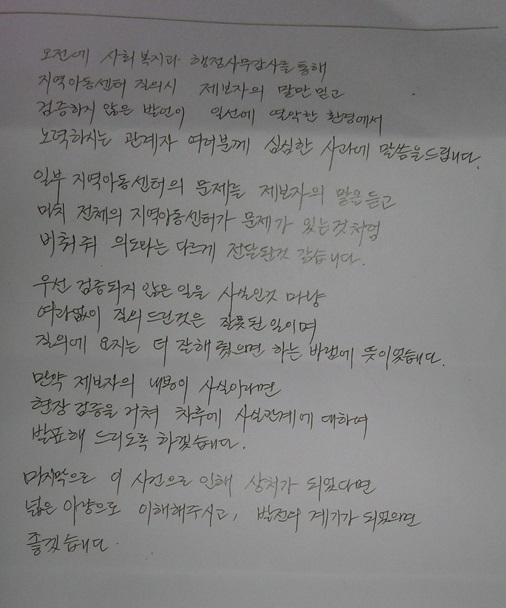 오전에 사회복지과 행정사무감사를 통해
지역아동센터 질의시 제보자의 말만 믿고
검증하지 않은 발언이 일선에 열악한 환경에서
노력하시는 관계자 여러분께 심심한 사과에 말씀을 드립니다.
일부 지역아동센터의 문제를 제보자의 말을 듣고
마치 전체의 지역아동센터가 문제가 있는것처럼
비춰줘 의도와는 다르게 전달된것 같습니다.
우선 검증되지 않은 일을 사실인것 마냥
여과없이 질의 드린것은 잘못된 일이며
질의에 요지는 더 잘해줬으면 하는 바램에 뜻이었습니다.
만약 제보자의 내용이 사실이라면
현장 검증을 거쳐 차후에 사실관계에 대하여
발표해 드리도록 하겠습니다.
마지막으로 이 사건으로 인해 상처가 되었다면
넓은 아량으로 이해해주시고, 발전의 계기가 되었으면
좋겠습니다.